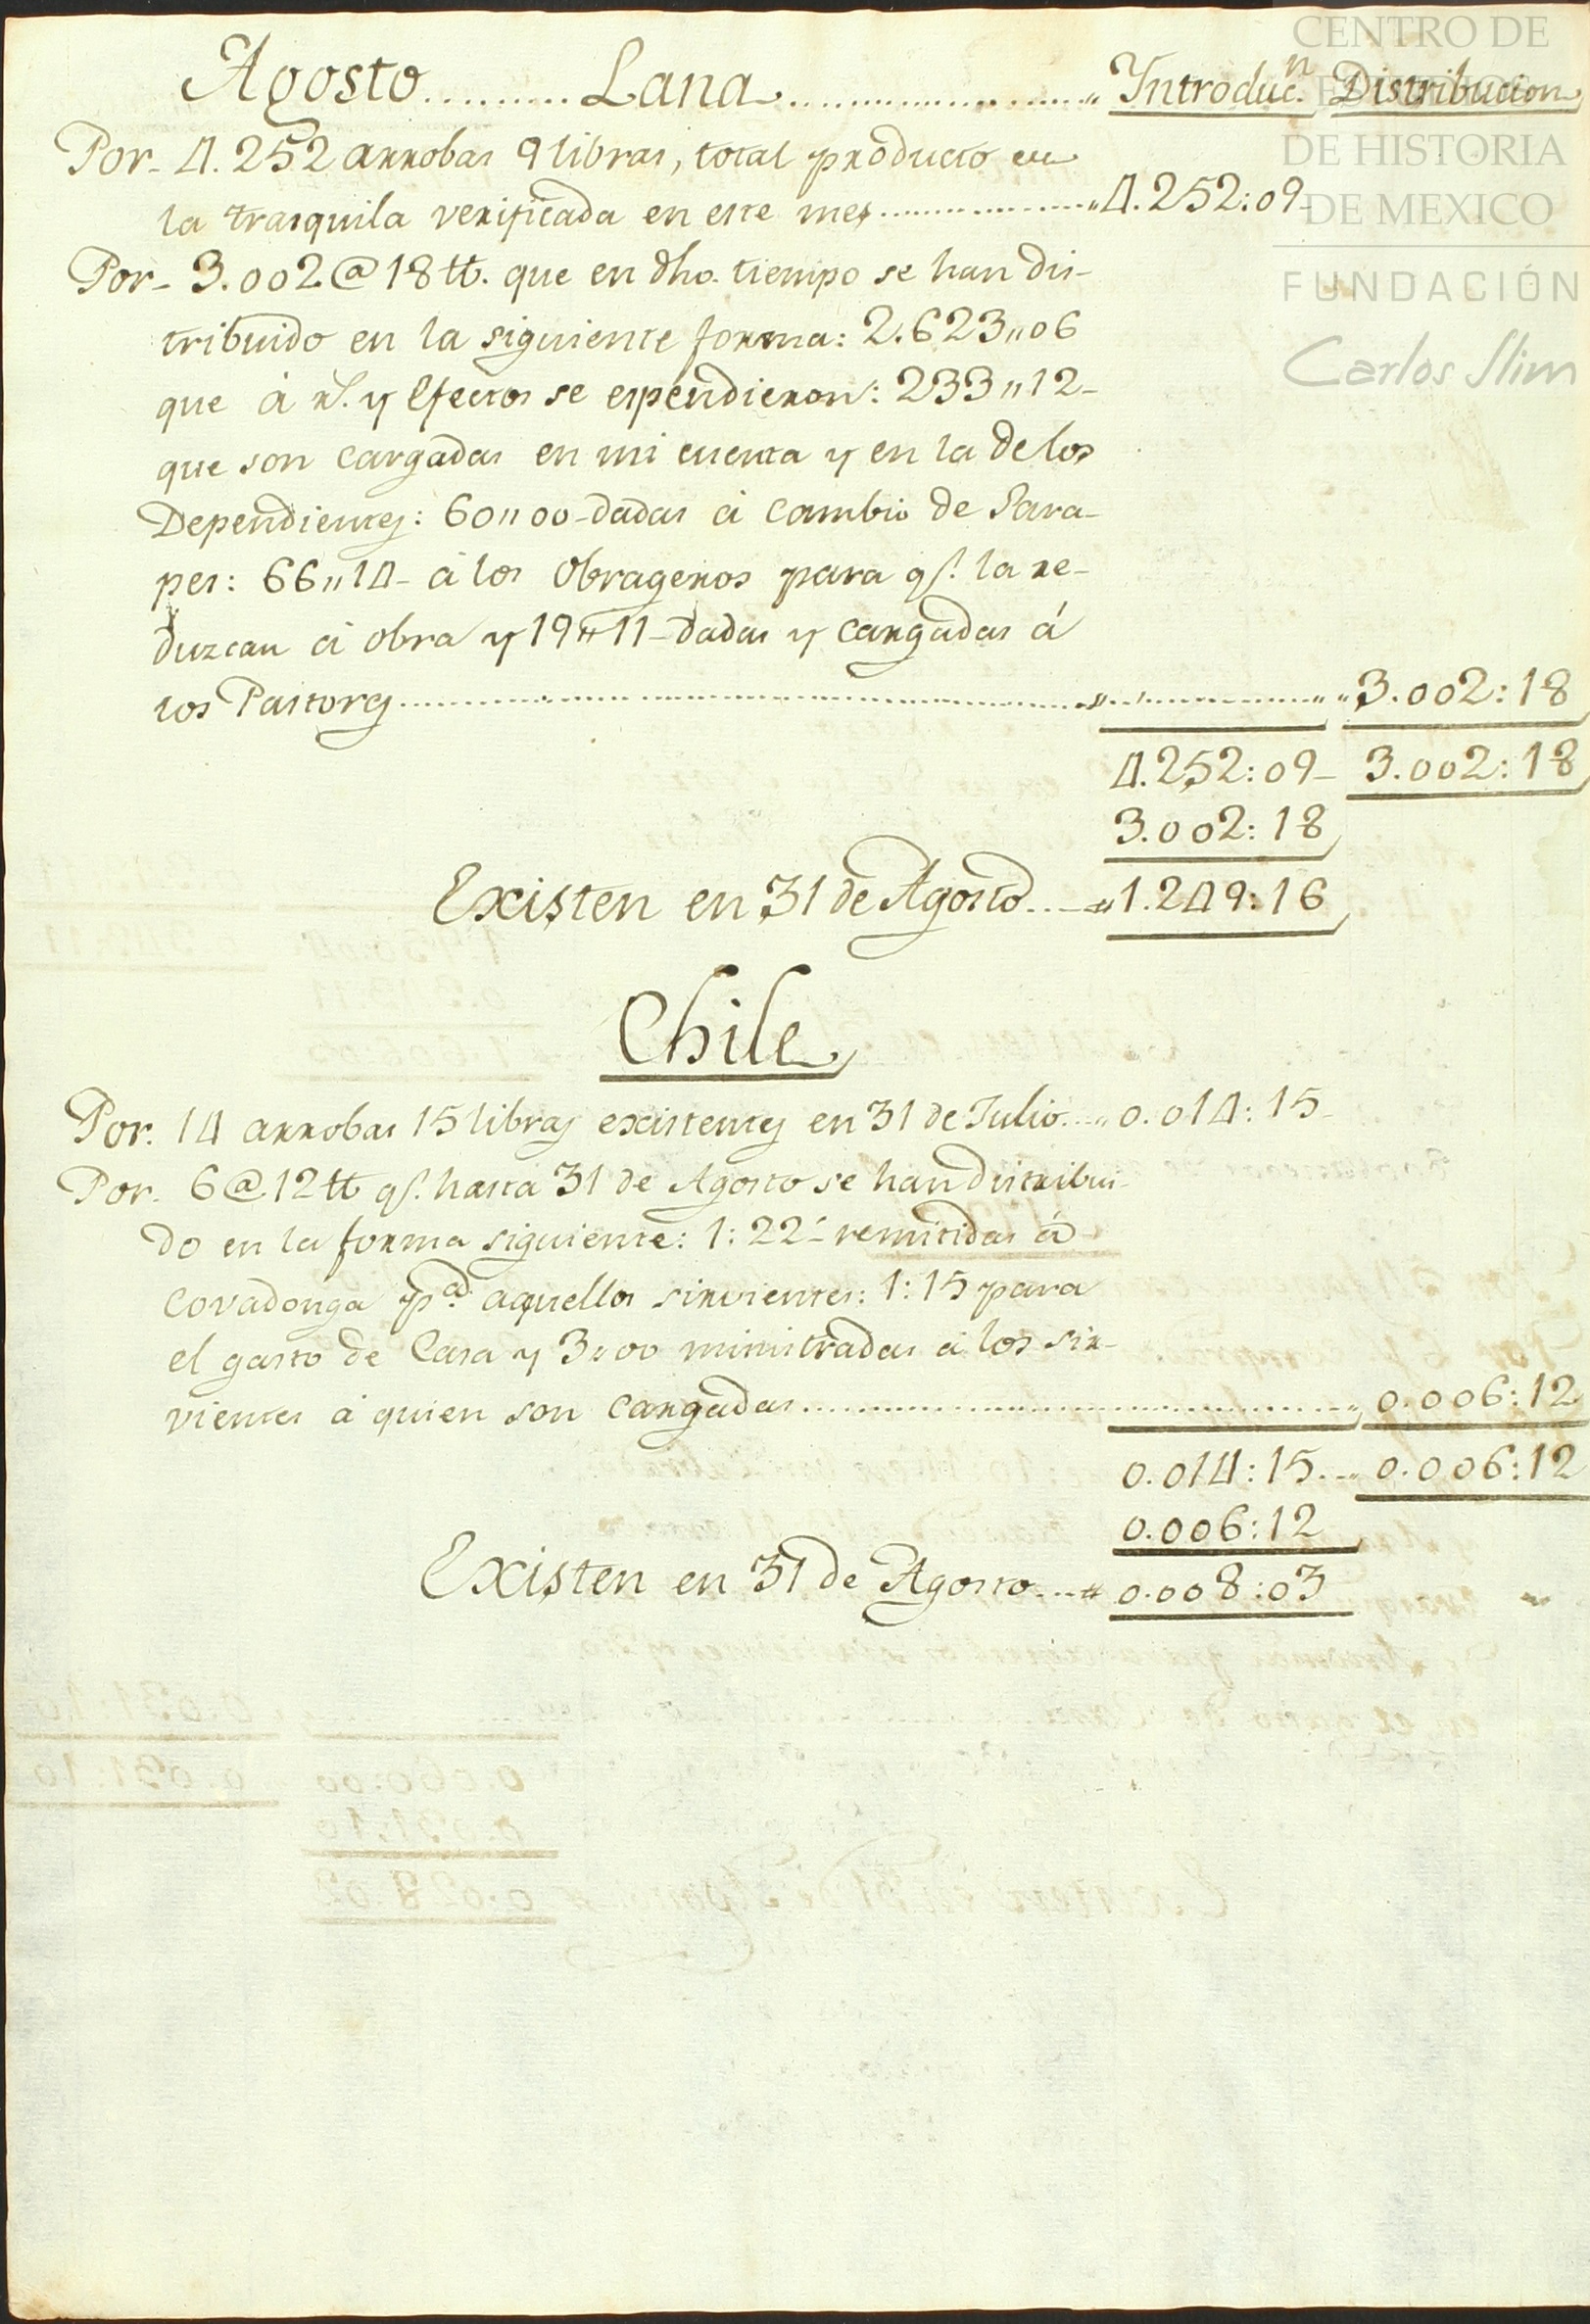 Agosto.......... Lana...................... Introducn. Distribucion
Por- 4.252 arrobas 9 libras, total producto en
la trasquila verificada en este mes................ 4.252:09-
Por- 3.002 @ 18 tt. que en dho. tiempo se han dis-
tribuido en la siguiente forma: 2.623,,06
que á rs. y efectos se espendieron: 233,,12-
que son cargadas en mi cuenta y en la de los
Dependientes: 60,,00- dadas á cambio de Sara-
pes: 66,,14- á los Obrageros para qe. la re-
duzcan á obra y 19,,11- dadas y cargadas á
los Pastores........................................ 3.002:18
4.252:09- 3.002:18
3.002:18
Existen en 31 de Agosto.... 1.249:16
Chile
Por. 14 arrobas 15 libras existentes en 31 de Julio.... 0.014:15-
Por. 6 @ 12 tt qe. hasta 31 de Agosto se han distribui-
do en la forma siguiente: 1:22- remitidas á
Covadonga pa. aquellos sirvientes: 1:15 para
el gasto de Casa y 3,,00 ministradas á los sir-
vientes á quien son cargadas........................ 0.006:12
0.014:15.... 0.006:12
0.006:12
Existen en 31 de Agosto.... 0.008:03
CENTRO DE
ESTUDIOS
DE HISTORIA
DE MEXICO
FUNDACIÓN
Carlos Slim